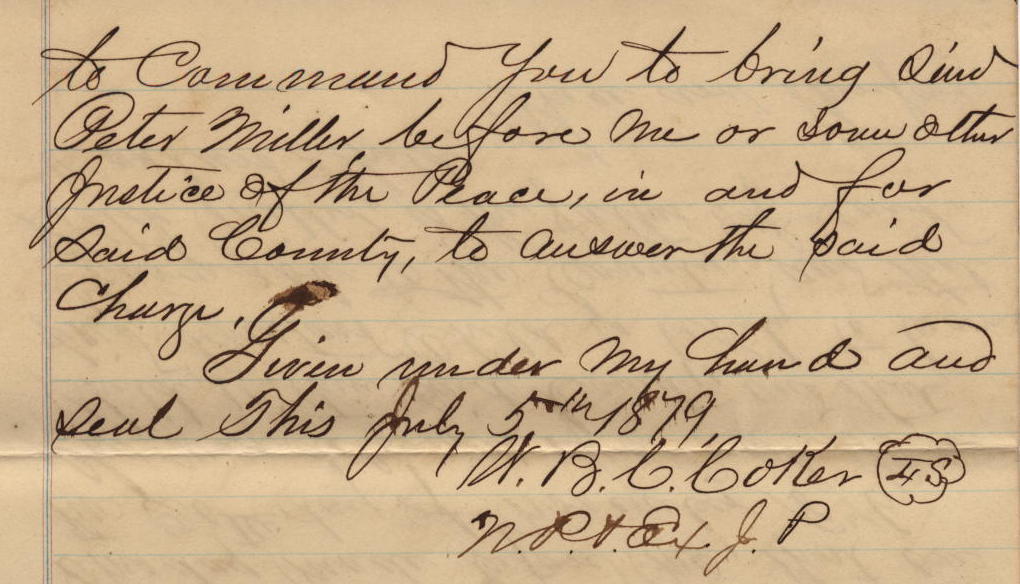 to Command You to bring said
Peter Miller, before me or some other
Justice of the Peace, in and for
said County, to answer the said
Charge.
Given under my hand and
seal This July 5th 1879,
W. B. C. Coker LS
N. P. & Ex. J. P